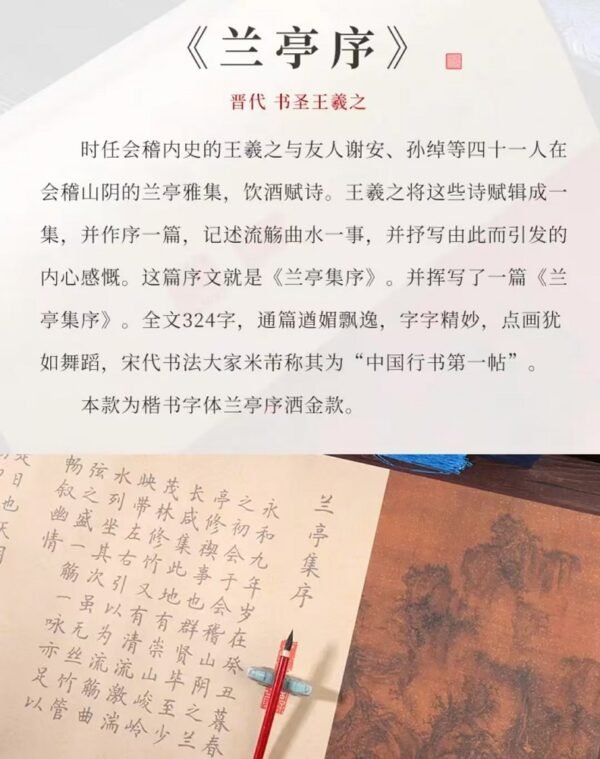 《兰亭序》
晋代 书圣王羲之
时任会稽内史的王羲之与友人谢安、孙绰等四十一人在
会稽山阴的兰亭雅集，饮酒赋诗。王羲之将这些诗赋辑成一
集，并作序一篇，记述流觞曲水一事，并抒写由此而引发的
内心感慨。这篇序文就是《兰亭集序》。并挥写了一篇《兰
亭集序》。全文324字，通篇遒媚飘逸，字字精妙，点画犹
如舞蹈，宋代书法大家米芾称其为“中国行书第一帖”。
本款为楷书字体兰亭序洒金款。
兰亭集序
永和九年岁在癸丑暮春
之初会于会稽山阴之兰
亭修禊事也群贤毕至少
长咸集此地有崇山峻岭
茂林修竹又有清流激湍
映带左右引以为流觞曲
水列坐其次虽无丝竹管
弦之盛一觞一咏亦足以
畅叙幽情
是日也天